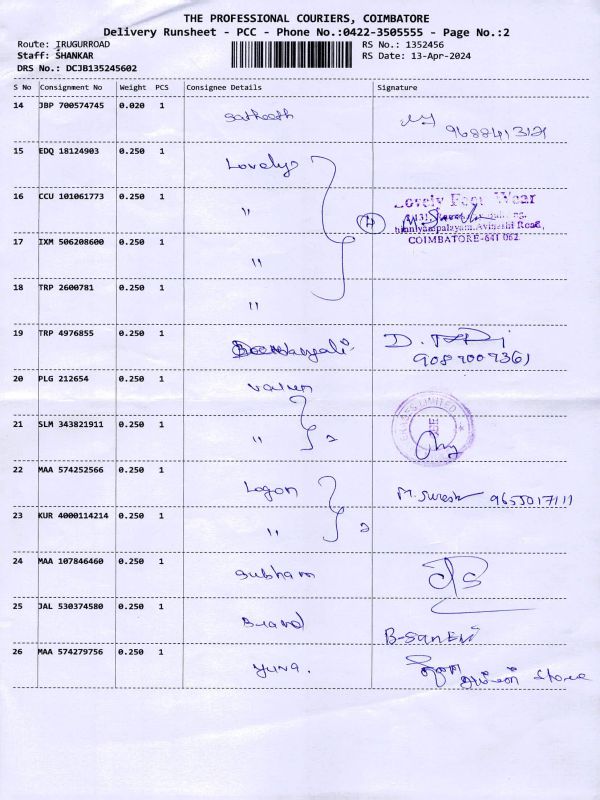 THE PROFESSIONAL COURIERS, COIMBATORE
Delivery Runsheet - PCC - Phone No.:0422-3505555 - Page No.:2
Route: IRUGURROAD
RS No.: 1352456
Staff: SHANKAR
RS Date: 13-Apr-2024
DRS No.: DCJB135245602
S No Consignment No Weight PCS Consignee Details Signature
14 JBP 700574745 0.020 1 Satheesh
9688413121
15 EDQ 18124903 0.250 1 Lovely
16 CCU 101061773 0.250 1 " 4 Lovely Foot Wear
COIMBATORE-641 062
17 IXM 506208600 0.250 1 "
18 TRP 2600781 0.250 1 "
19 TRP 4976855 0.250 1 D.
20 PLG 212654 0.250 1
21 SLM 343821911 0.250 1 " 2
22 MAA 574252566 0.250 1 Logon M. Suresh 9655017111
23 KUR 4000114214 0.250 1 " 2
24 MAA 107846460 0.250 1 Subham
25 JAL 530374580 0.250 1 Brand B-Sanki
26 MAA 574279756 0.250 1 Yuva. Store